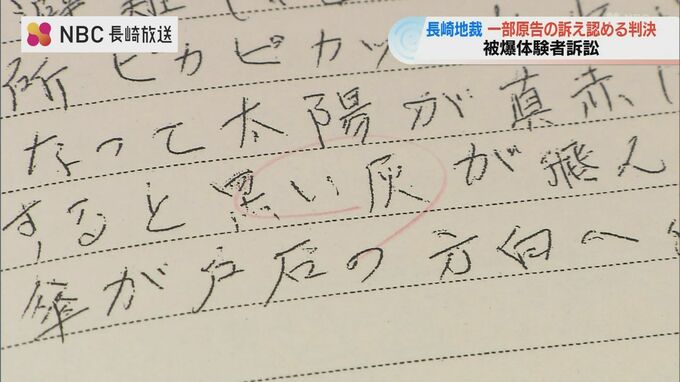 NBC 長崎放送
長崎地裁 一部原告の訴え認める判決
被爆体験者訴訟
所ピカピカッ
なって太陽が真赤
すると黒い灰が飛ん
傘が戸石の方向へ